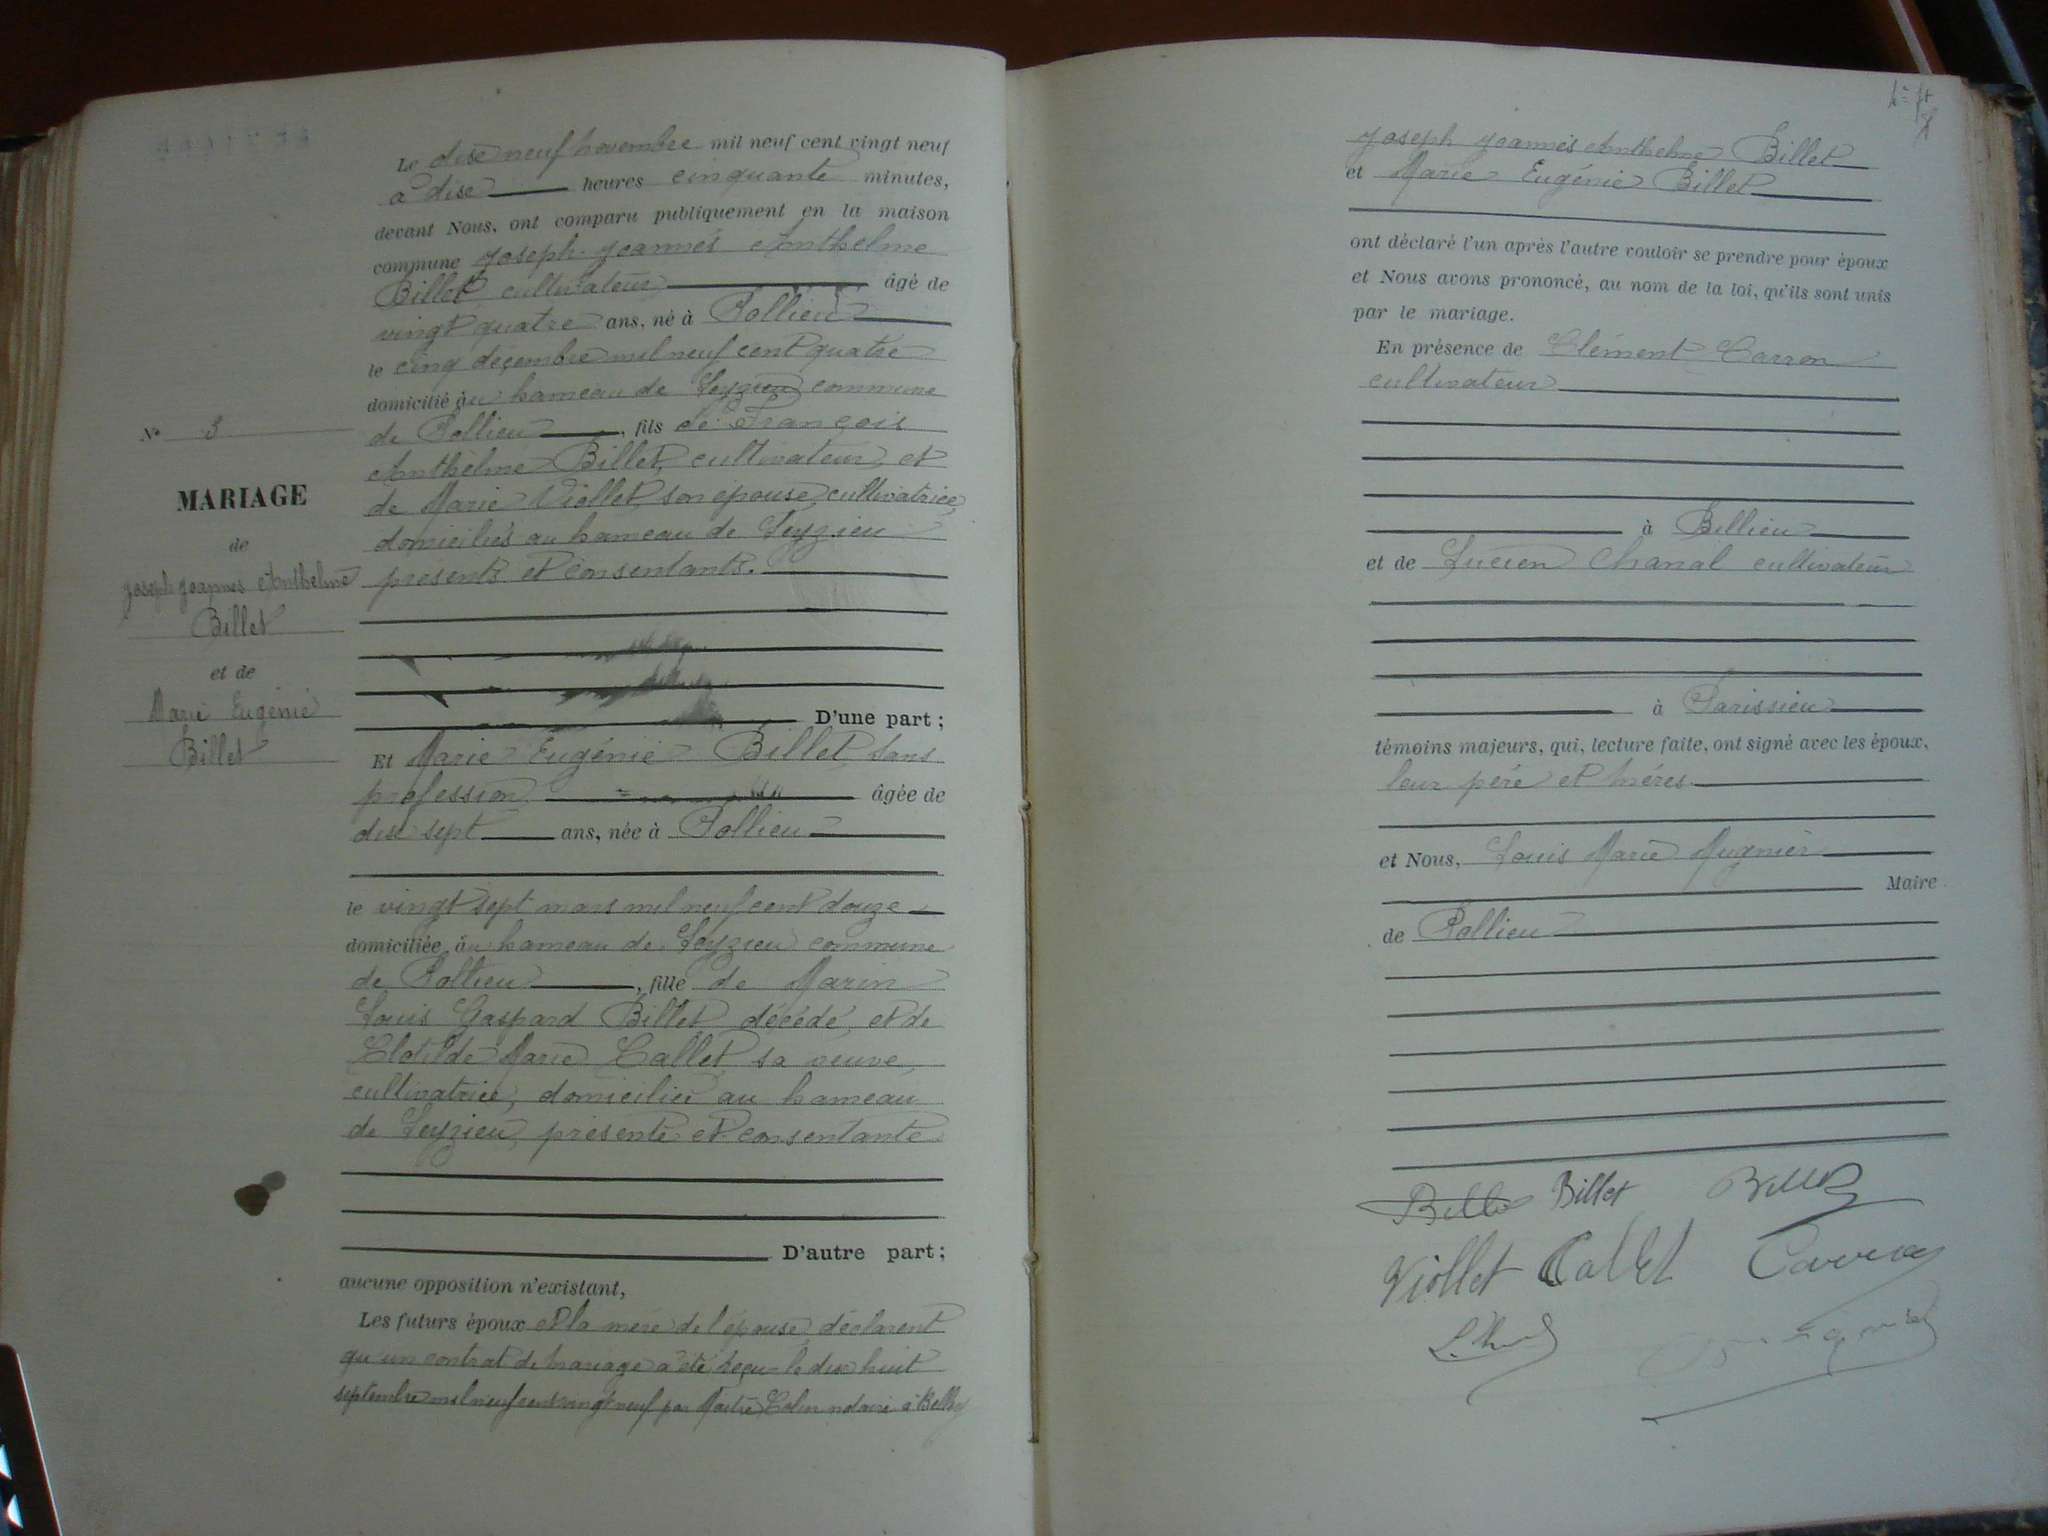 N° 3
MARIAGE
de
Joseph Joannès Anthelme
Billet
et de
Marie Eugénie
Billet
Le dix neuf novembre mil neuf cent vingt neuf
à dix heures cinquante minutes,
devant Nous, ont comparu publiquement en la maison
commune Joseph Joannès Anthelme
Billet, cultivateur âgé de
vingt quatre ans, né à Pollieu
le cinq décembre mil neuf cent quatre
domicilié au hameau de Leyzieu commune
de Pollieu, fils de François
Anthelme Billet, cultivateur, et
de Marie Viollet, son épouse, cultivatrice,
domiciliés au hameau de Leyzieu
présents et consentants.
D'une part;
Et Marie Eugénie Billet, sans
profession âgée de
dix sept ans, née à Pollieu
le vingt sept mars mil neuf cent douze
domiciliée au hameau de Leyzieu commune
de Pollieu, fille de Marin
Louis Gaspard Billet, décédé, et de
Clotilde Marie Callet, sa veuve,
cultivatrice, domiciliée au hameau
de Leyzieu, présente et consentante
D'autre part;
aucune opposition n'existant,
Les futurs époux et la mère de l'épouse, déclarent
qu'un contrat de mariage a été reçu le dix huit
septembre mil neuf cent vingt neuf par Maître notaire à Belley
Joseph Joannès Anthelme Billet
et Marie Eugénie Billet
ont déclaré l'un après l'autre vouloir se prendre pour époux
et Nous avons prononcé, au nom de la loi, qu'ils sont unis
par le mariage.
En présence de Clément Carron
cultivateur
à Billieu
et de Lucien Chanal cultivateur
à Parissieu
témoins majeurs, qui, lecture faite, ont signé avec les époux,
leur père et mères
et Nous, Louis Marie Mugnier
Maire
de Pollieu
Billet Billet Billet
Viollet Callet Carron